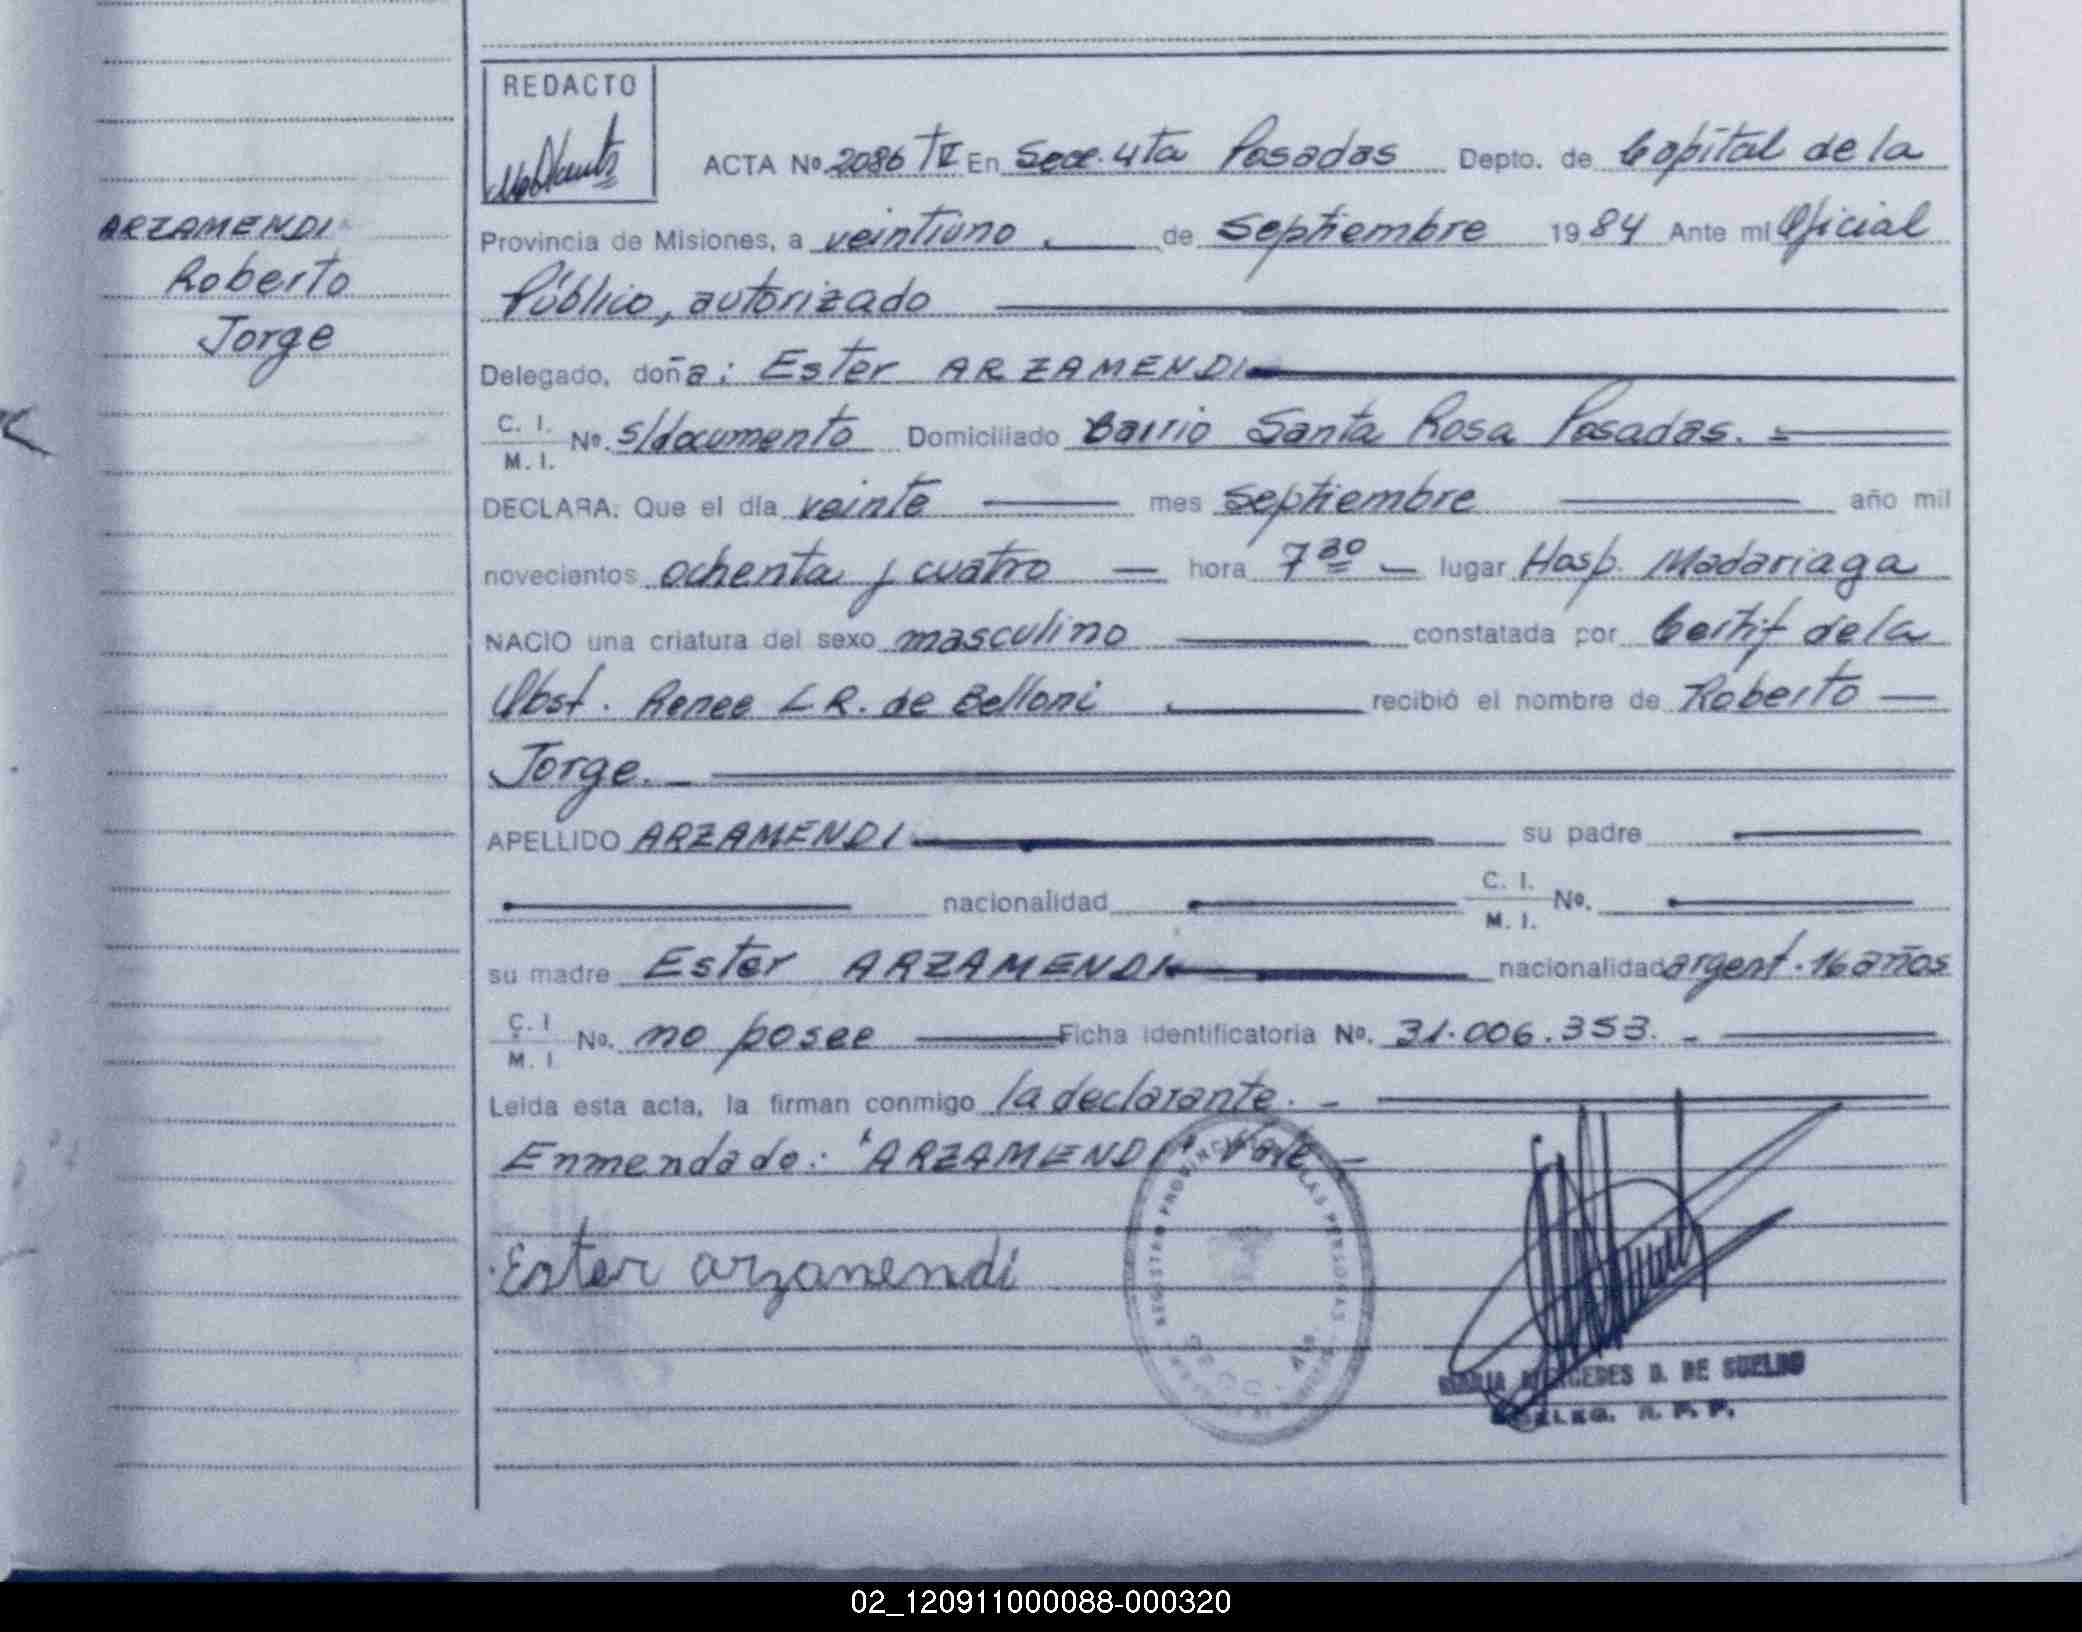 REDACTO
ACTA Nº 2086 TV En Secc. 4ta Posadas Depto. de Capital de la
ARZAMENDI
Roberto
Jorge
Provincia de Misiones, a veintiuno de Septiembre 1984 Ante mi Oficial
Público, autorizado
Delegado, doña: Ester ARZAMENDI
C. I.
M. I. Nº. s/documento Domiciliado Barrio Santa Rosa Posadas.
DECLARA: Que el día veinte mes septiembre año mil
novecientos ochenta y cuatro hora 7 30 lugar Hosp. Madariaga
NACIO una criatura del sexo masculino constatada por Certif de la
Obst. Renee L R. de Belloni recibió el nombre de Roberto
Jorge.
APELLIDO ARZAMENDI su padre
nacionalidad C. I. M. I. Nº.
su madre Ester ARZAMENDI nacionalidad argent. 16 años
C. I M. I Nº. no posee Ficha identificatoria Nº. 31.006.353.
Leída esta acta, la firman conmigo la declarante.
Enmendado: "ARZAMENDI" Vale
Ester arzamendi
MARIA MERCEDES D. DE SUELDO
DELEG. R. P. P.
02_120911000088-000320